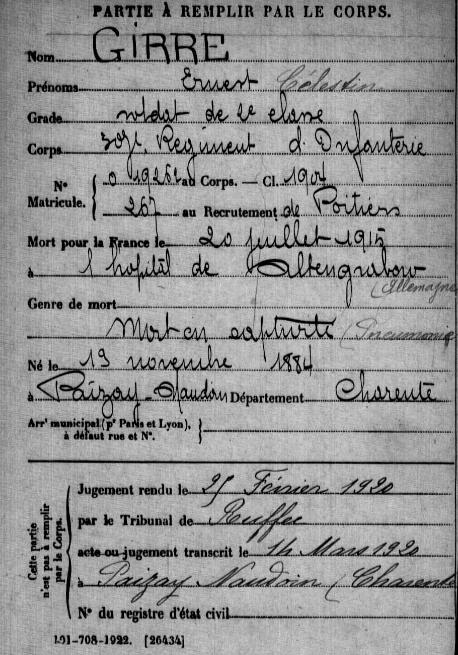 PARTIE À REMPLIR PAR LE CORPS.
Nom GIRRE
Prénoms Ernest Célestin
Grade soldat de 2e classe
Corps 307e Régiment d'Infanterie
N° Matricule. { 0 19262 au Corps. — Cl. 1904
267 au Recrutement de Poitiers
Mort pour la France le 20 juillet 1915
à l'hopitâl de Altengrabow
(Allemagne
Genre de mort
Mort en captivité (Pneumonie
Né le 19 novembre 1884
à Paizay-Naudoin Département Charente
Arrt municipal (pr Paris et Lyon), à défaut rue et N°. }
Cette partie n'est pas à remplir par le Corps.
Jugement rendu le 25 Février 1920
par le Tribunal de Ruffec
acte ou jugement transcrit le 14 Mars 1920
à Paizay Naudoin (Charente
N° du registre d'état civil
101-708-1922. [26434]